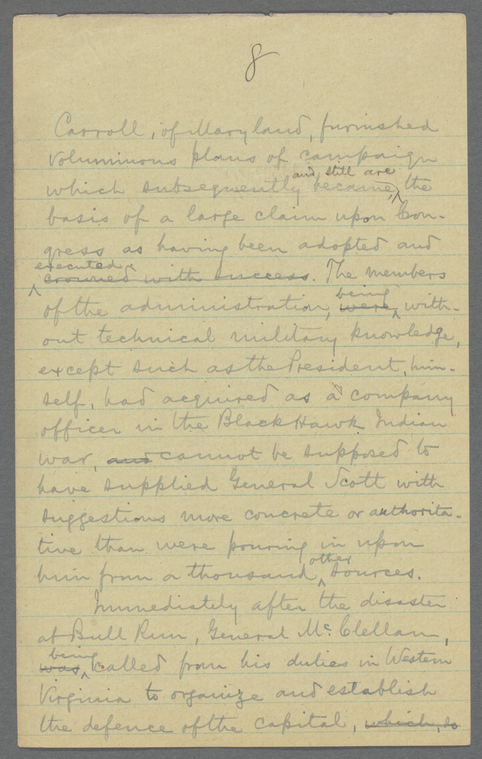 8
Carroll, of Maryland, furnished
voluminous plans of campaign
and, still are
which subsequently became, the
basis of a large claim upon Con-
gress as having been adopted and
executed
crowned with success. The members
being
of the administration, were with-
out technical military knowledge,
except such as the President, him-
self, had acquired as a company
officer in the Black Hawk Indian
war, and cannot be supposed to
have supplied General Scott with
suggestions more concrete or authorita-
tive than were pouring in upon
other
him from a thousand sources.
Immediately after the disaster
at Bull Run, General McClellan,
being
was called from his duties in Western
Virginia to organize and establish
the defence of the capital, which, so